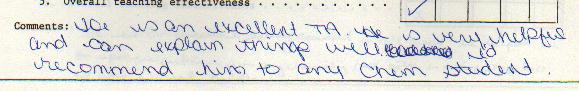 5. Overall teaching effectiveness . . . . . . . . . .
Comments: Joe is an excellent TA. He is very helpful
and can explain things well. I'd
recommend him to any Chem student.